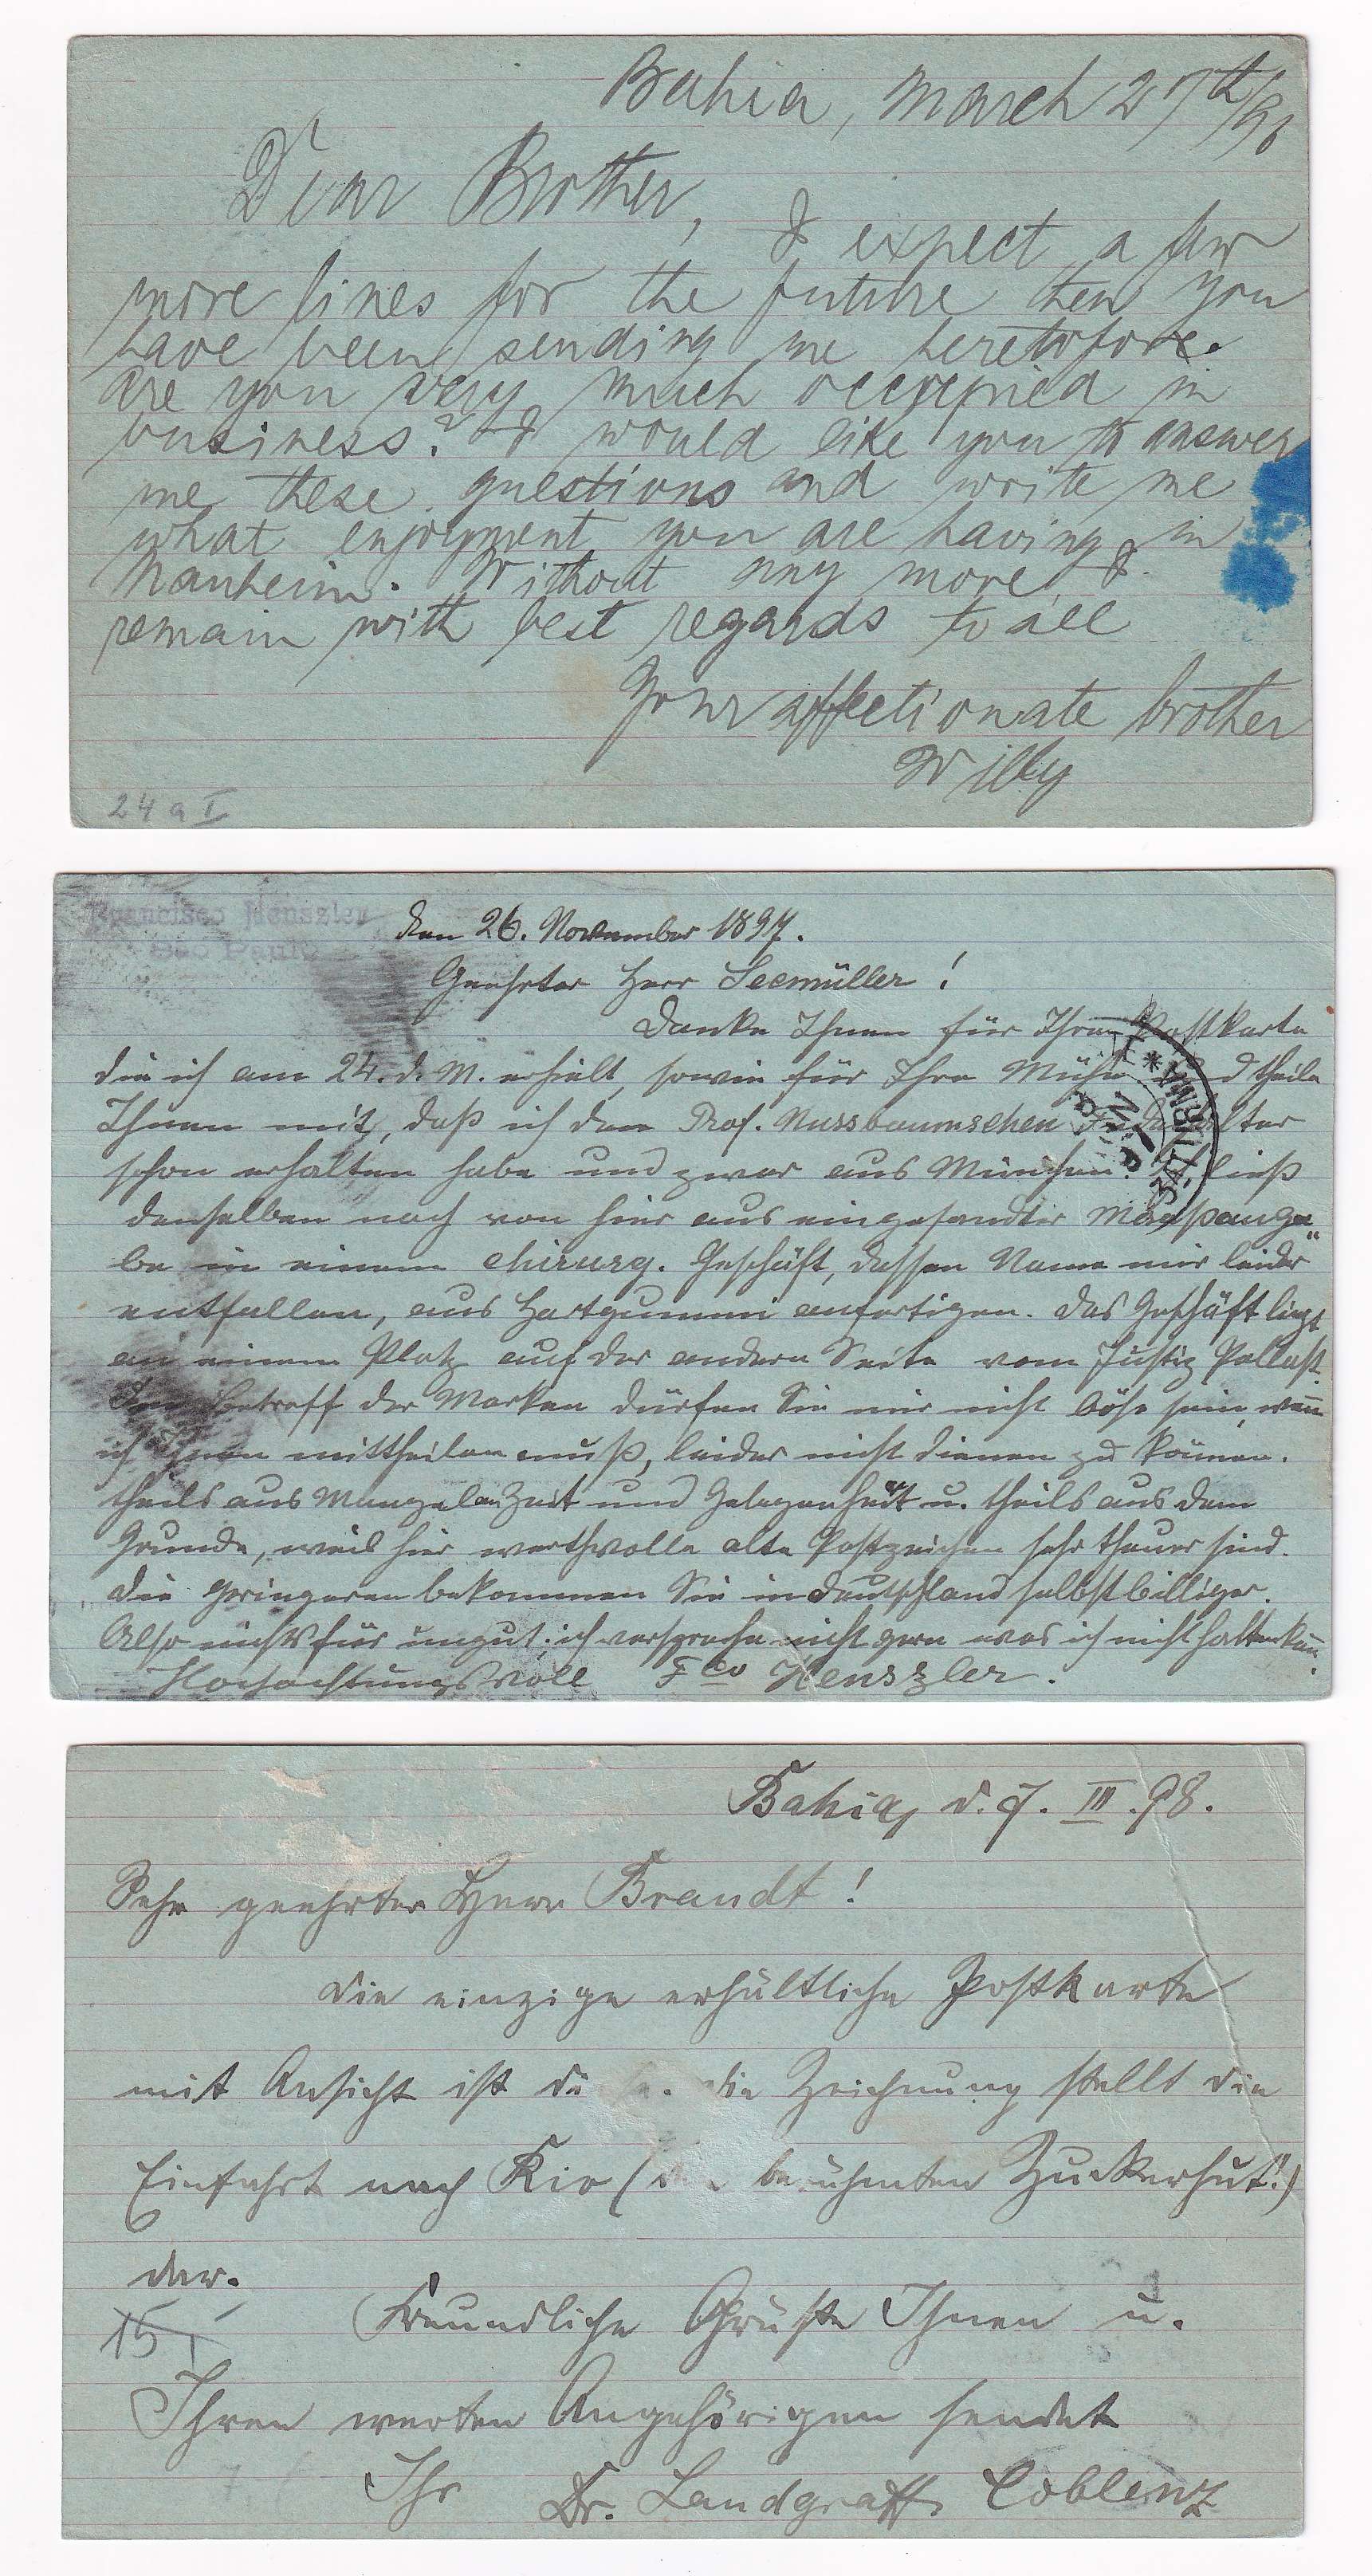 Bahia, March 27th/98
Dear Brother,
I expect a few
more lines for the future then you
have been sending me heretofore.
Are you very much occupied in
business? I would like you to answer
me these questions and write me
what enjoyment you are having in
Manheim. Without any more, I
remain with best regards to all
Your affectionate brother
Willy
24 a I
Francisco Henszler
São Paulo
den 26. November 1897.
Geehrter Herr Seemüller!
Danke Ihnen für Ihre Postkarte
die ich am 24. d. M. erhielt, sowie für Ihre Mühe und theile
Ihnen mit, daß ich den Prof. Nussbaumschen
schon erhalten habe und zwar aus München. ließ
denselben nach von hier aus eingesandter Maaßanga-
be in einem chirurg. Geschäft, dessen Name mir leider
entfallen, aus Hartgummi anfertigen. Das Geschäft liegt
an einem Platz auf der andern Seite vom Justiz Pallast.
Betreff der Marken dürfen Sie mir nicht böse sein, wenn
ich Ihnen mittheilen muß, leider nicht dienen zu können.
theils aus Mangel an Zeit und Gelegenheit u. theils aus dem
Grunde, weil hier werthvolle alte Postzeichen sehr theuer sind.
Die Geringeren bekommen Sie in Deutschland selbst billiger.
Also nichts für ungut; ich verspreche nicht gern was ich nicht halten kann.
Hochachtungsvoll Fco Henszler.
Bahia, d. 7. III. 98.
Sehr geehrter Herr Brandt!
Die einzige erhältliche Postkarte
mit Ansicht ist die Zeichnung stellt die
Einfahrt nach Rio ( berühmten Zuckerhut!)
dar.
15 I
Freundliche Grüße Ihnen u.
Ihren werten Angehörigen sendet
Ihr Dr. Landgraff, Coblenz